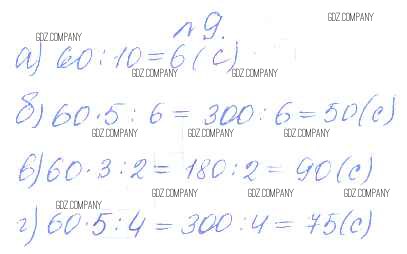 GDZ.COMPANY
№ 9.
GDZ.COMPANY
а) 60 : 10 = 6 (с)
GDZ.COMPANY GDZ.COMPANY
б) 60 · 5 : 6 = 300 : 6 = 50 (с)
GDZ.COMPANY GDZ.COMPANY GDZ.COMPANY
в) 60 · 3 : 2 = 180 : 2 = 90 (с)
GDZ.COMPANY GDZ.COMPANY GDZ.COMPANY
GDZ.COMPANY
г) 60 · 5 : 4 = 300 : 4 = 75 (с)